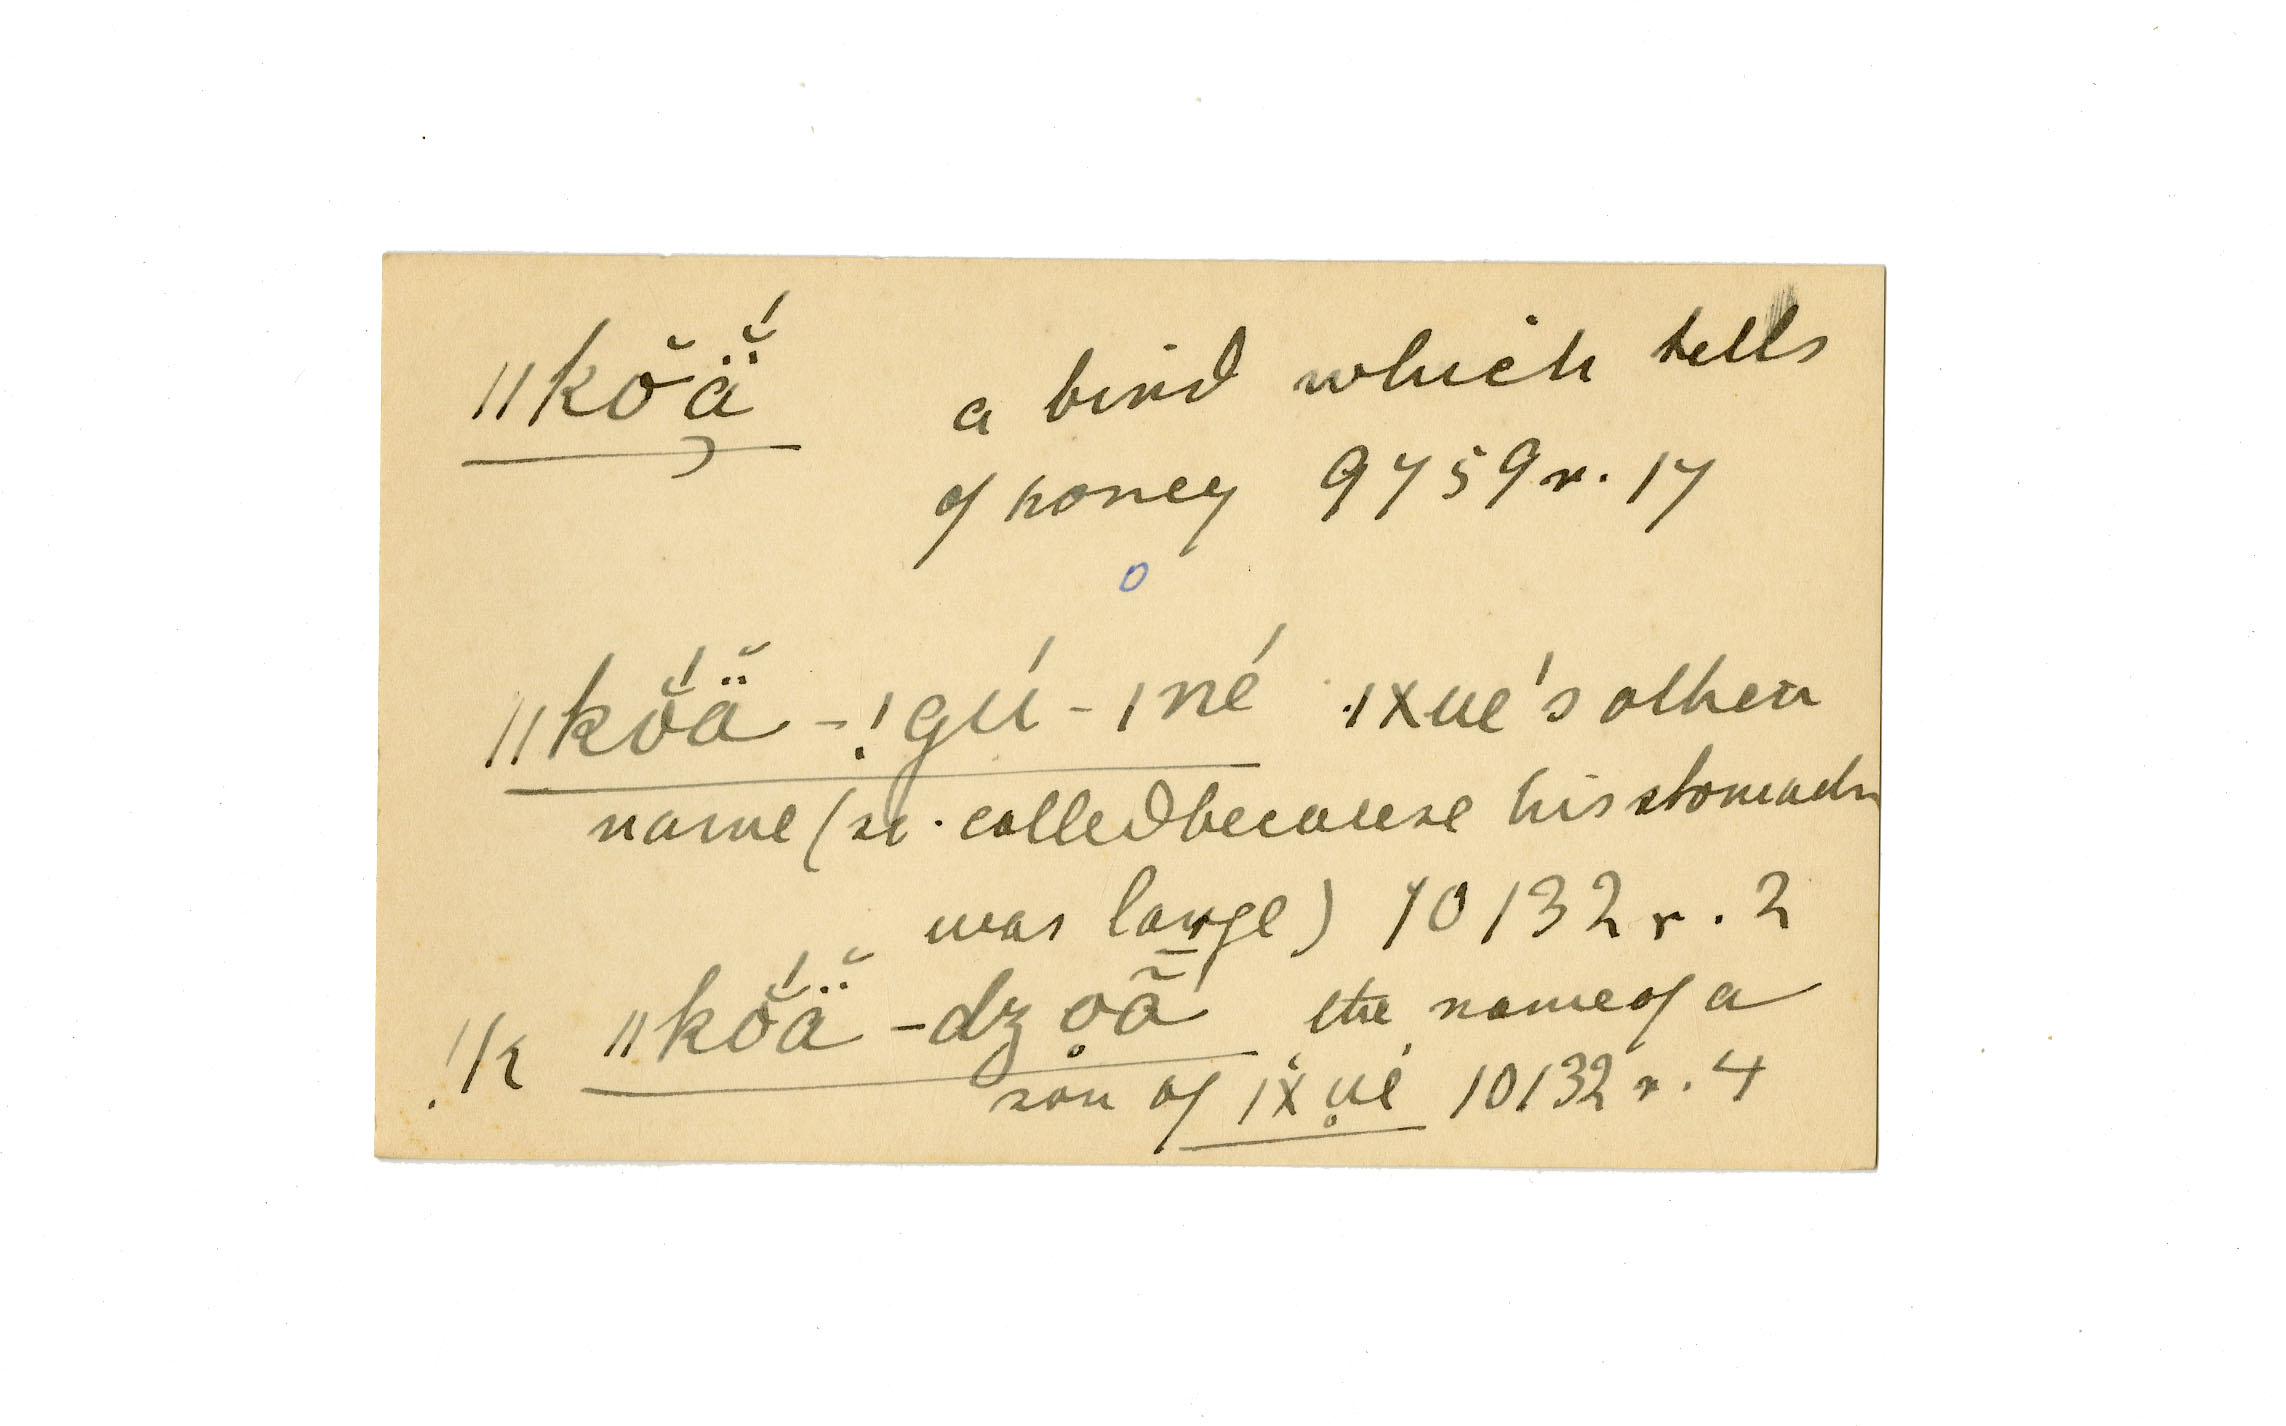 ǁkŏä̆́ a bird which tells
of honey 9759 r. 17
ǁkŏ́ä̆ - !gú - ǀné ǀxue's other
name (so called because his stomach
was large) 10132 r. 2
!k ǁkŏ́ä̆ - dzo̥ã the name of a
son of ǀx̆u̥é 10132 r. 4